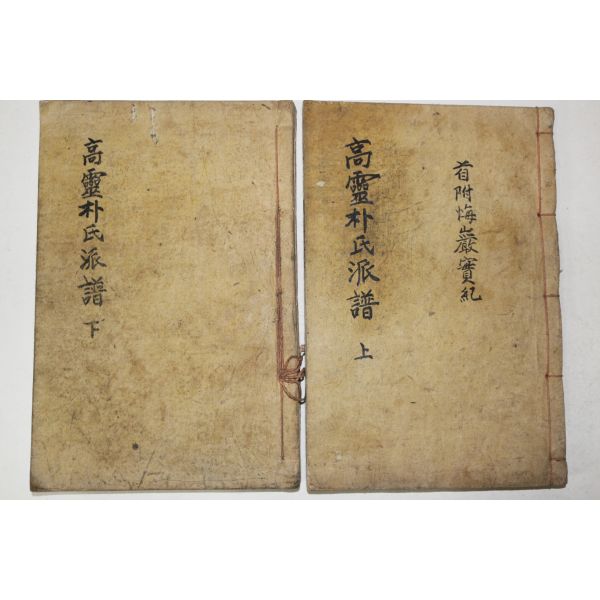 首附悔巖實紀
高靈朴氏派譜 上
高靈朴氏派譜 下